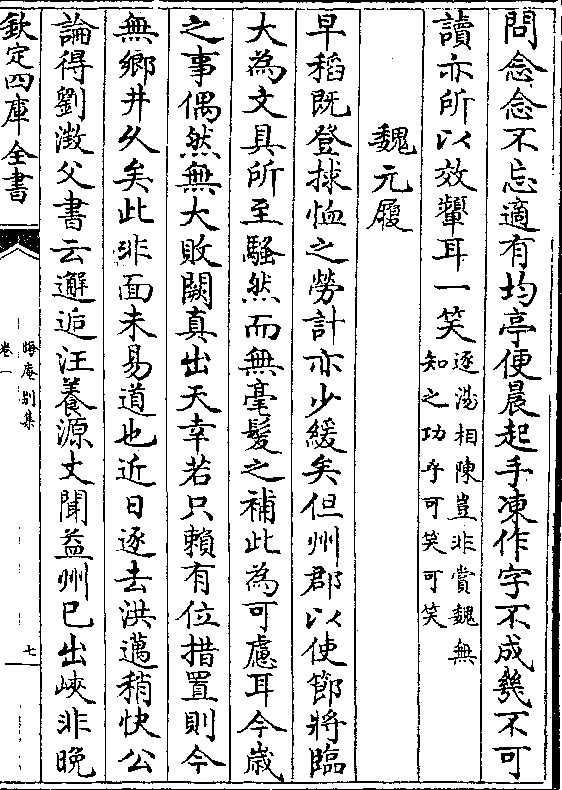 問念念不忘適有均亭便晨起手凍作字不成幾不可
讀亦所以效顰耳一笑
逐湯相陳豈非賞魏無
知之功乎可笑可笑
魏元履
早稻既登捄恤之勞計亦少緩矣但州郡以使節將臨
大為文具所至騷然而無毫髪之補此為可慮耳今歳
之事偶然無大敗闕真出天幸若只賴有位措置則今
無鄉井久矣此非面未易道也近日逐去洪邁稍快公
論得劉澂父書云邂逅汪養源丈聞益州已出峽非晚
欽定四庫全書
晦庵別集
卷一
七